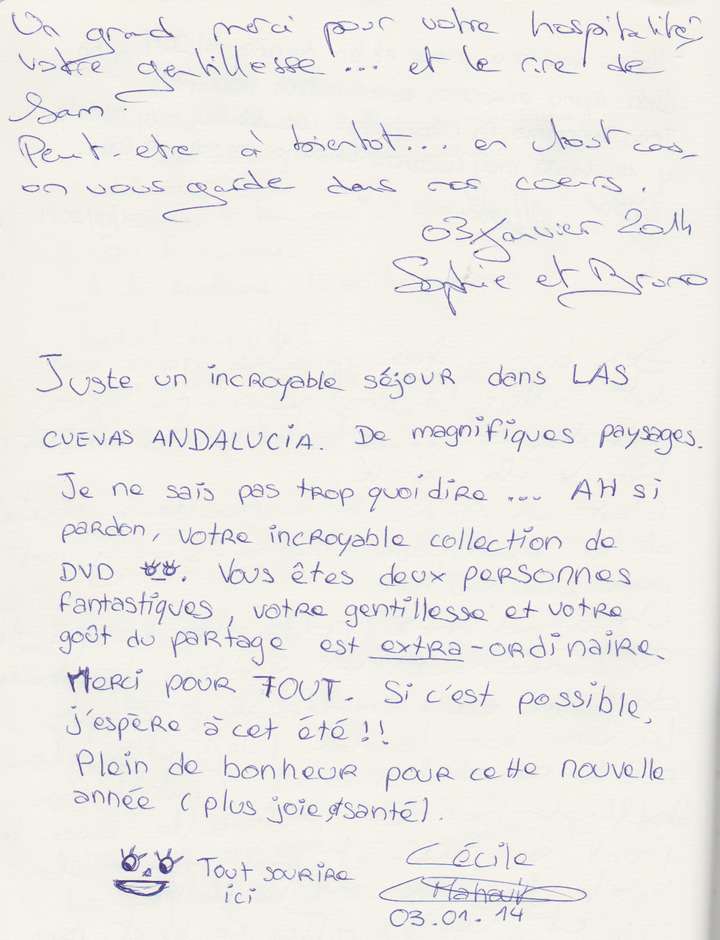 Un grand merci pour votre hospitalité,
votre gentillesse ... et le rire de
Sam.
Peut-etre à bientot... en tout cas,
on vous garde dans nos coeurs.
03 Janvier 2014
Sophie et Bruno
Juste un incroyable séjour dans LAS
CUEVAS ANDALUCIA. De magnifiques paysages.
Je ne sais pas trop quoi dire ... AH si
pardon, votre incroyable collection de
DVD. Vous êtes deux personnes
fantastiques, votre gentillesse et votre
goût du partage est extra-ordinaire.
Merci pour TOUT. Si c'est possible,
j'espère à cet été !!
Plein de bonheur pour cette nouvelle
année (plus joie, santé).
Tout sourire
ici
Cécile
03.01.14